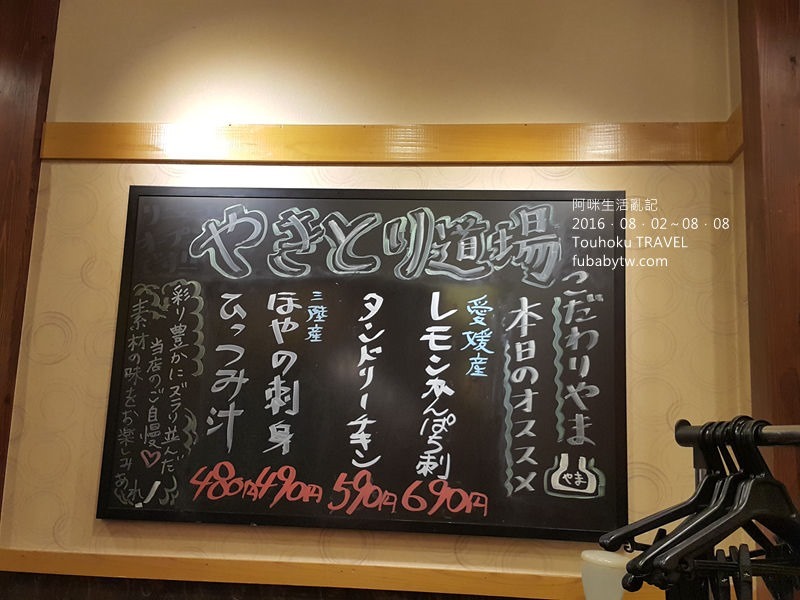 やきとり道場
こだわりやま
やま
本日のオススメ
愛媛産
レモンかんぱち刺
690円
タンドリーチキン
590円
三陸産
ほやの刺身
490円
ひっつみ汁
480円
彩り豊かにズラリ並んだ
当店のご自慢♡
素材の味をお楽しみあれ!
阿咪生活亂記
2016・08・02~08・08
Touhoku TRAVEL
fubabytw.com